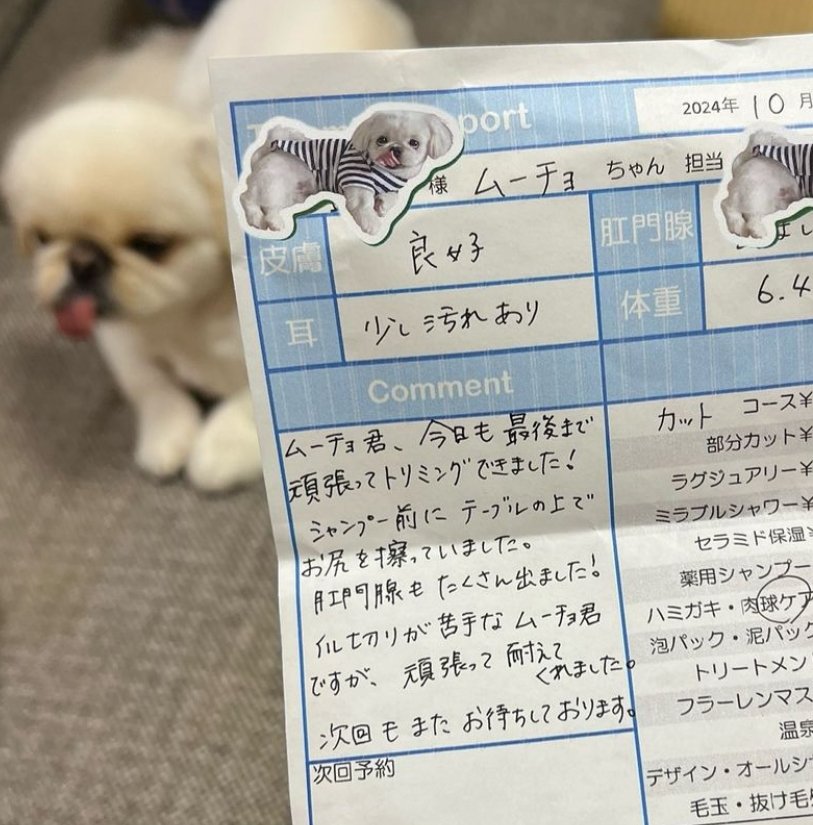 port
2024年 10月
様 ムーチョ ちゃん 担当
皮膚 良好 肛門腺
耳 少し汚れあり 体重 6.4
Comment
ムーチョ君、今日も最後まで
頑張ってトリミングできました!
シャンプー前にテーブルの上で
お尻を擦っていました。
肛門腺もたくさん出ました!
爪切りが苦手なムーチョ君
ですが、頑張って耐えて
くれました。
次回もまたお待ちしております。
次回予約
カット コース¥
部分カット¥
ラグジュアリー¥
ミラブルシャワー¥
セラミド保湿¥
薬用シャンプー
ハミガキ・肉球ケア
泡パック・泥パック
トリートメン
フラーレンマス
温泉
デザイン・オールシ
毛玉・抜け毛